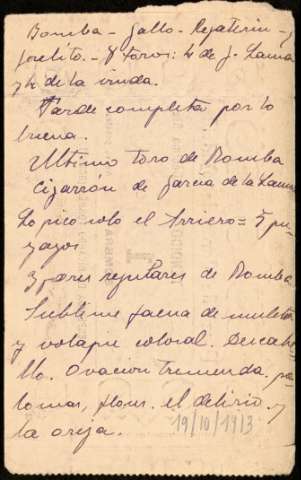 Bomba - Gallo - Regaterin - y
Joselito. - 8 toros: 4 de G. Lama
y 4 de la viuda.
Tarde completa por lo
buena.
Ultimo toro de Bomba
Cigarrón de Garcia de la Lama
Lo picó solo el Arriero = 5 pu-
yazos
3 pares regulares de Bomba
Sublime faena de muleta
y volapie colosal. Descabe-
llo. Ovacion tremenda. pa-
lomas, flores. el delirio y
la oreja.
19/10/1913